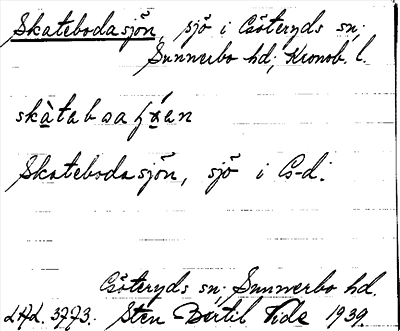 Skatebodasjön, sjö i Österyds sn;
Sunnerbo hd; Kronob. l.
skàtaboaʃǿ̀en
Skatebodasjön, sjö i Ö-d.
Österyds sn; Sunnerbo hd.
3773. Sten Bertil Vide 1939.